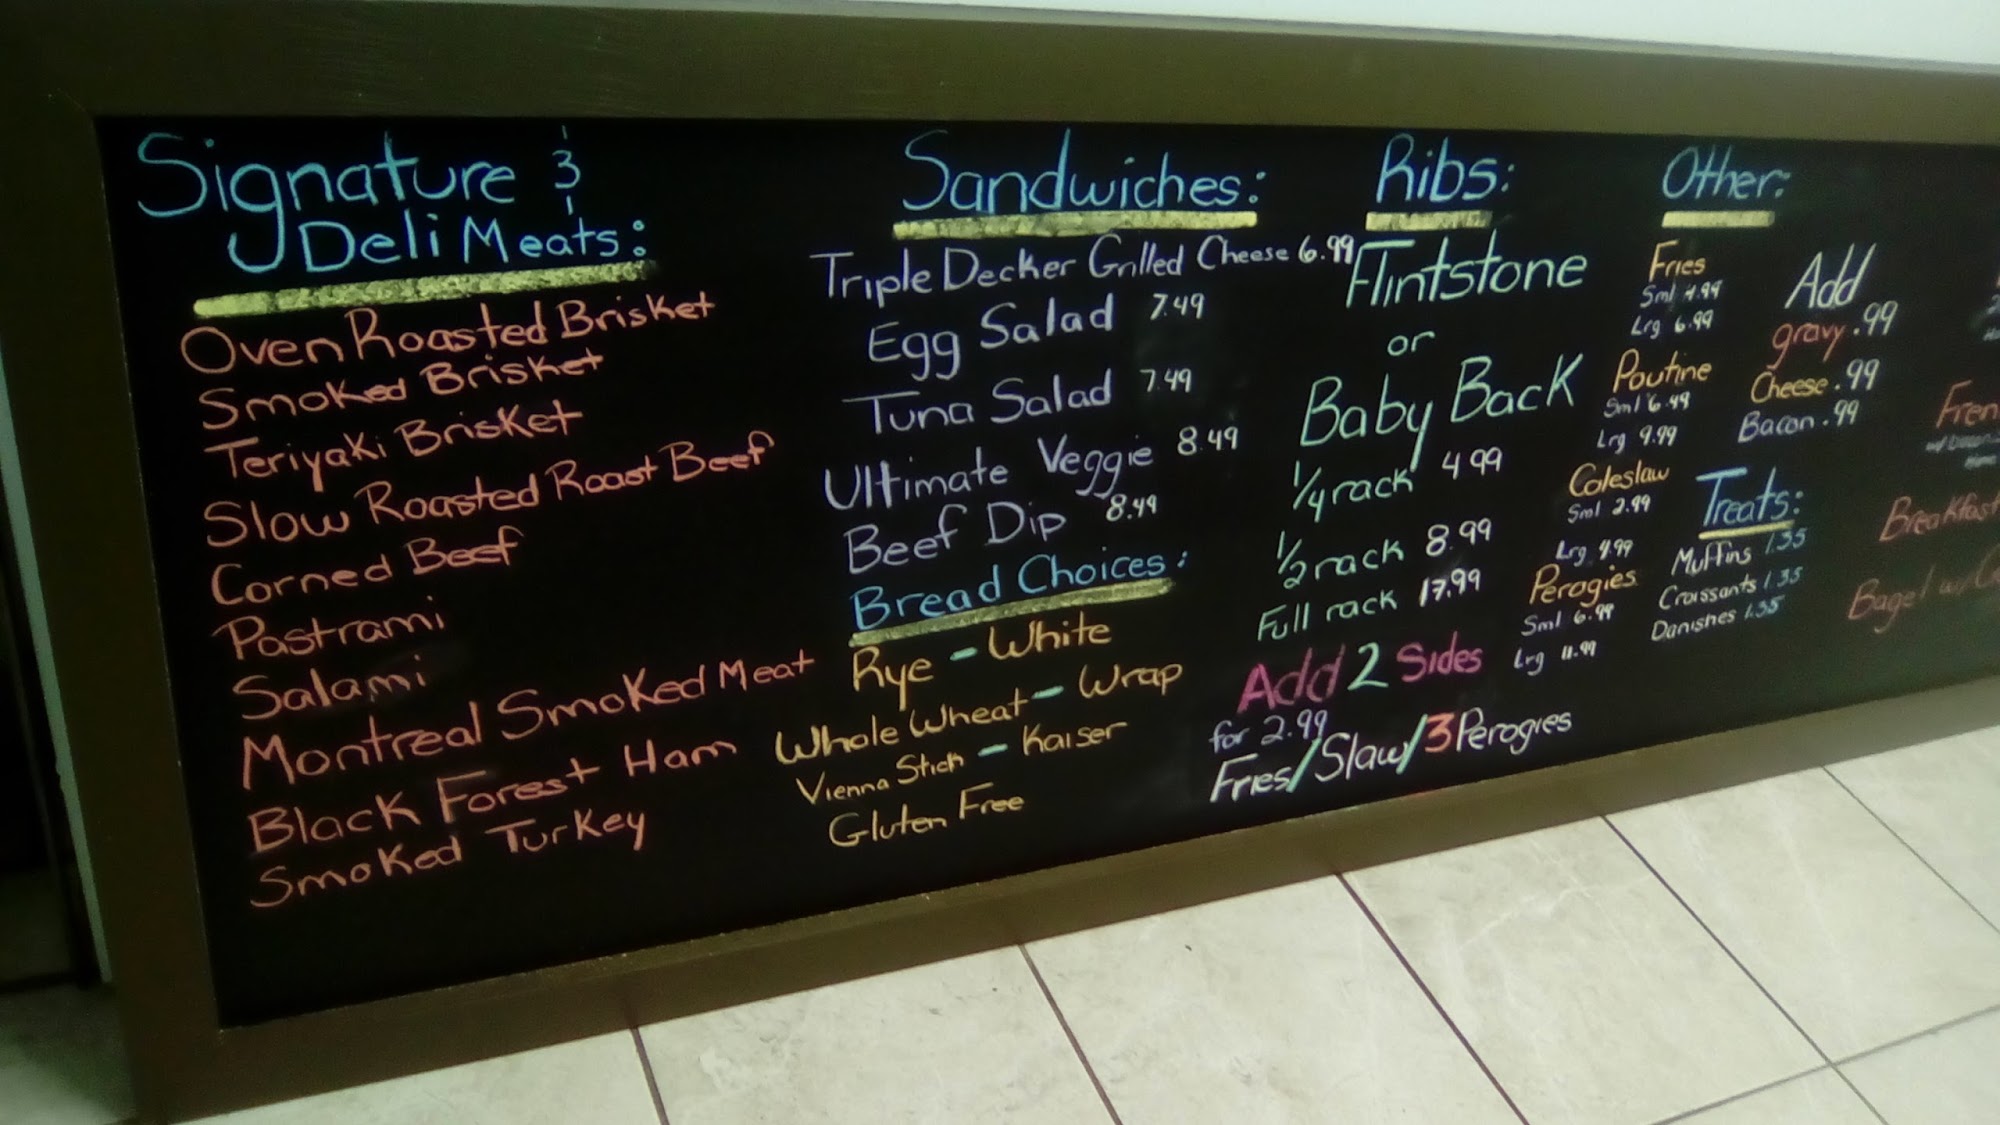 Signature &
Deli Meats:
Oven Roasted Brisket
Smoked Brisket
Teriyaki Brisket
Slow Roasted Roast Beef
Corned Beef
Pastrami
Salami
Montreal Smoked Meat
Black Forest Ham
Smoked Turkey
Sandwiches:
Triple Decker Grilled Cheese 6.99
Egg Salad 7.49
Tuna Salad 7.49
Ultimate Veggie 8.49
Beef Dip 8.49
Bread Choices:
Rye - White
Whole Wheat - Wrap
Vienna Stick - Kaiser
Gluten Free
Ribs:
Flintstone
or
Baby Back
1/4 rack 4 99
1/2 rack 8.99
Full rack 17.99
Add 2 Sides
for 2.99
Fries/Slaw/3 Perogies
Other:
Fries
Sml 4.99
Lrg 6.99
Poutine
Sml 6.49
Lrg 9.99
Coleslaw
Sml 2.99
Lrg 4.99
Perogies
Sml 6.99
Lrg 11.99
Add
gravy .99
Cheese .99
Bacon .99
Treats:
Muffins 1.35
Croissants 1.35
Danishes 1.35
Fren
Breakfast
Bagel w/